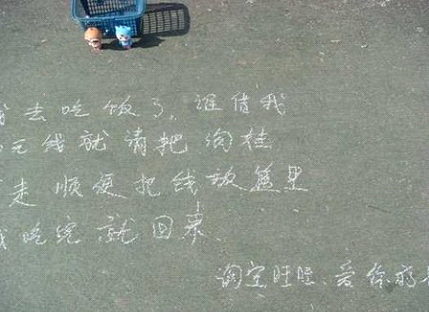 去吃饭了,谁借我
元钱就请把狗挂
走顺便把钱放篮里
我吃完就回来
淘宝旺旺.爱你